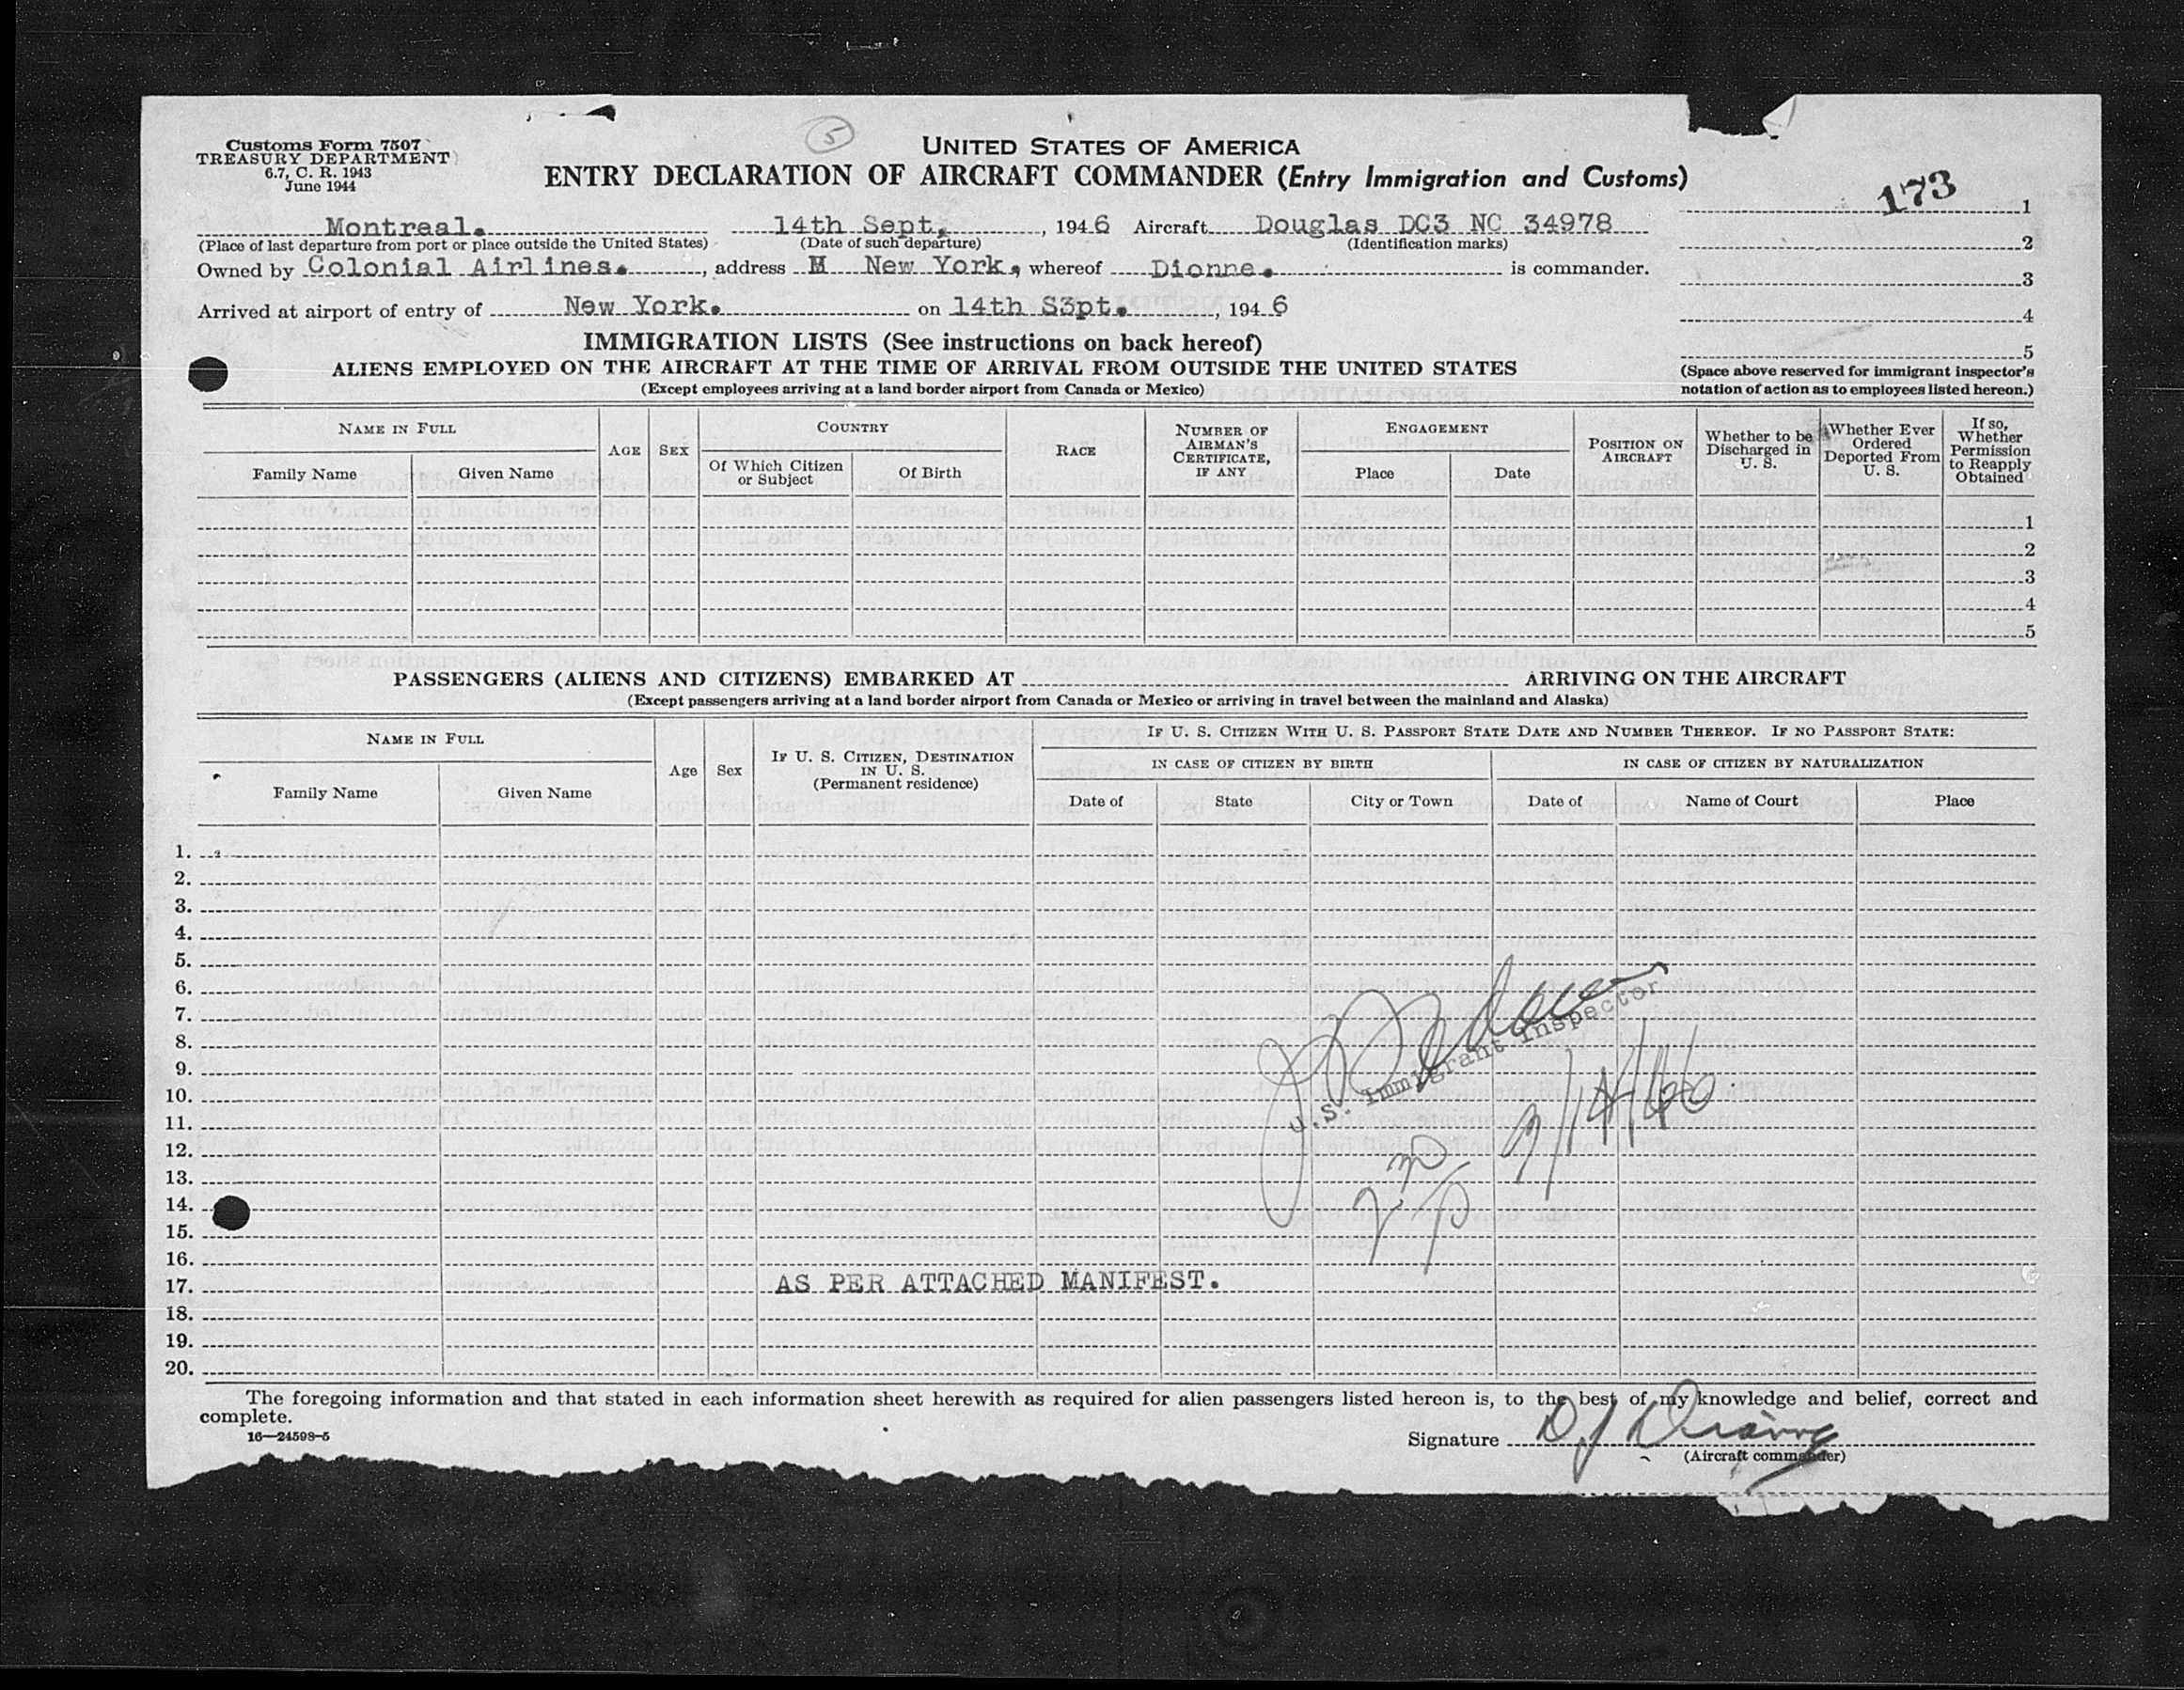 Customs Form 7507
TREASURY DEPARTMENT
6.7, C. R. 1943
June 1944
5
UNITED STATES OF AMERICA
ENTRY DECLARATION OF AIRCRAFT COMMANDER (Entry Immigration and Customs)
173
1
Montreal. 14th Sept. , 1946 Aircraft Douglas DC3 NC 34978
(Place of last departure from port or place outside the United States) (Date of such departure) (Identification marks)
2
Owned by Colonial Airlines. , address M New York, whereof Dionne. is commander.
3
Arrived at airport of entry of New York. on 14th S3pt. , 1946
4
IMMIGRATION LISTS (See instructions on back hereof)
5
ALIENS EMPLOYED ON THE AIRCRAFT AT THE TIME OF ARRIVAL FROM OUTSIDE THE UNITED STATES
(Except employees arriving at a land border airport from Canada or Mexico)
(Space above reserved for immigrant inspector's
notation of action as to employees listed hereon.)
NAME IN FULL
Family Name Given Name
AGE SEX
COUNTRY
Of Which Citizen
or Subject
Of Birth
RACE
NUMBER OF
AIRMAN'S
CERTIFICATE,
IF ANY
ENGAGEMENT
Place Date
POSITION ON
AIRCRAFT
Whether to be
Discharged in
U. S.
Whether Ever
Ordered
Deported From
U. S.
If so,
Whether
Permission
to Reapply
Obtained
1
2
3
4
5
PASSENGERS (ALIENS AND CITIZENS) EMBARKED AT ARRIVING ON THE AIRCRAFT
(Except passengers arriving at a land border airport from Canada or Mexico or arriving in travel between the mainland and Alaska)
NAME IN FULL
Family Name Given Name
Age Sex
IF U. S. CITIZEN, DESTINATION
IN U. S.
(Permanent residence)
IF U. S. CITIZEN WITH U. S. PASSPORT STATE DATE AND NUMBER THEREOF. IF NO PASSPORT STATE:
IN CASE OF CITIZEN BY BIRTH IN CASE OF CITIZEN BY NATURALIZATION
Date of State City or Town Date of Name of Court Place
1.
2.
3.
4.
5.
6.
7.
8.
9.
10.
11.
12.
13.
14.
15.
16.
17. AS PER ATTACHED MANIFEST.
18.
19.
20.
U.S. Immigrant Inspector
9/14/46
The foregoing information and that stated in each information sheet herewith as required for alien passengers listed hereon is, to the best of my knowledge and belief, correct and
complete.
16—24598-5
Signature D J Dionne
(Aircraft commander)